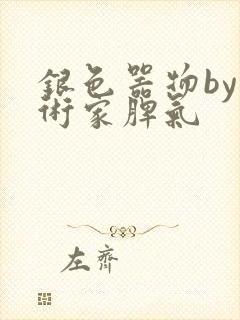 銀色器物by
術家脾氣
左齊